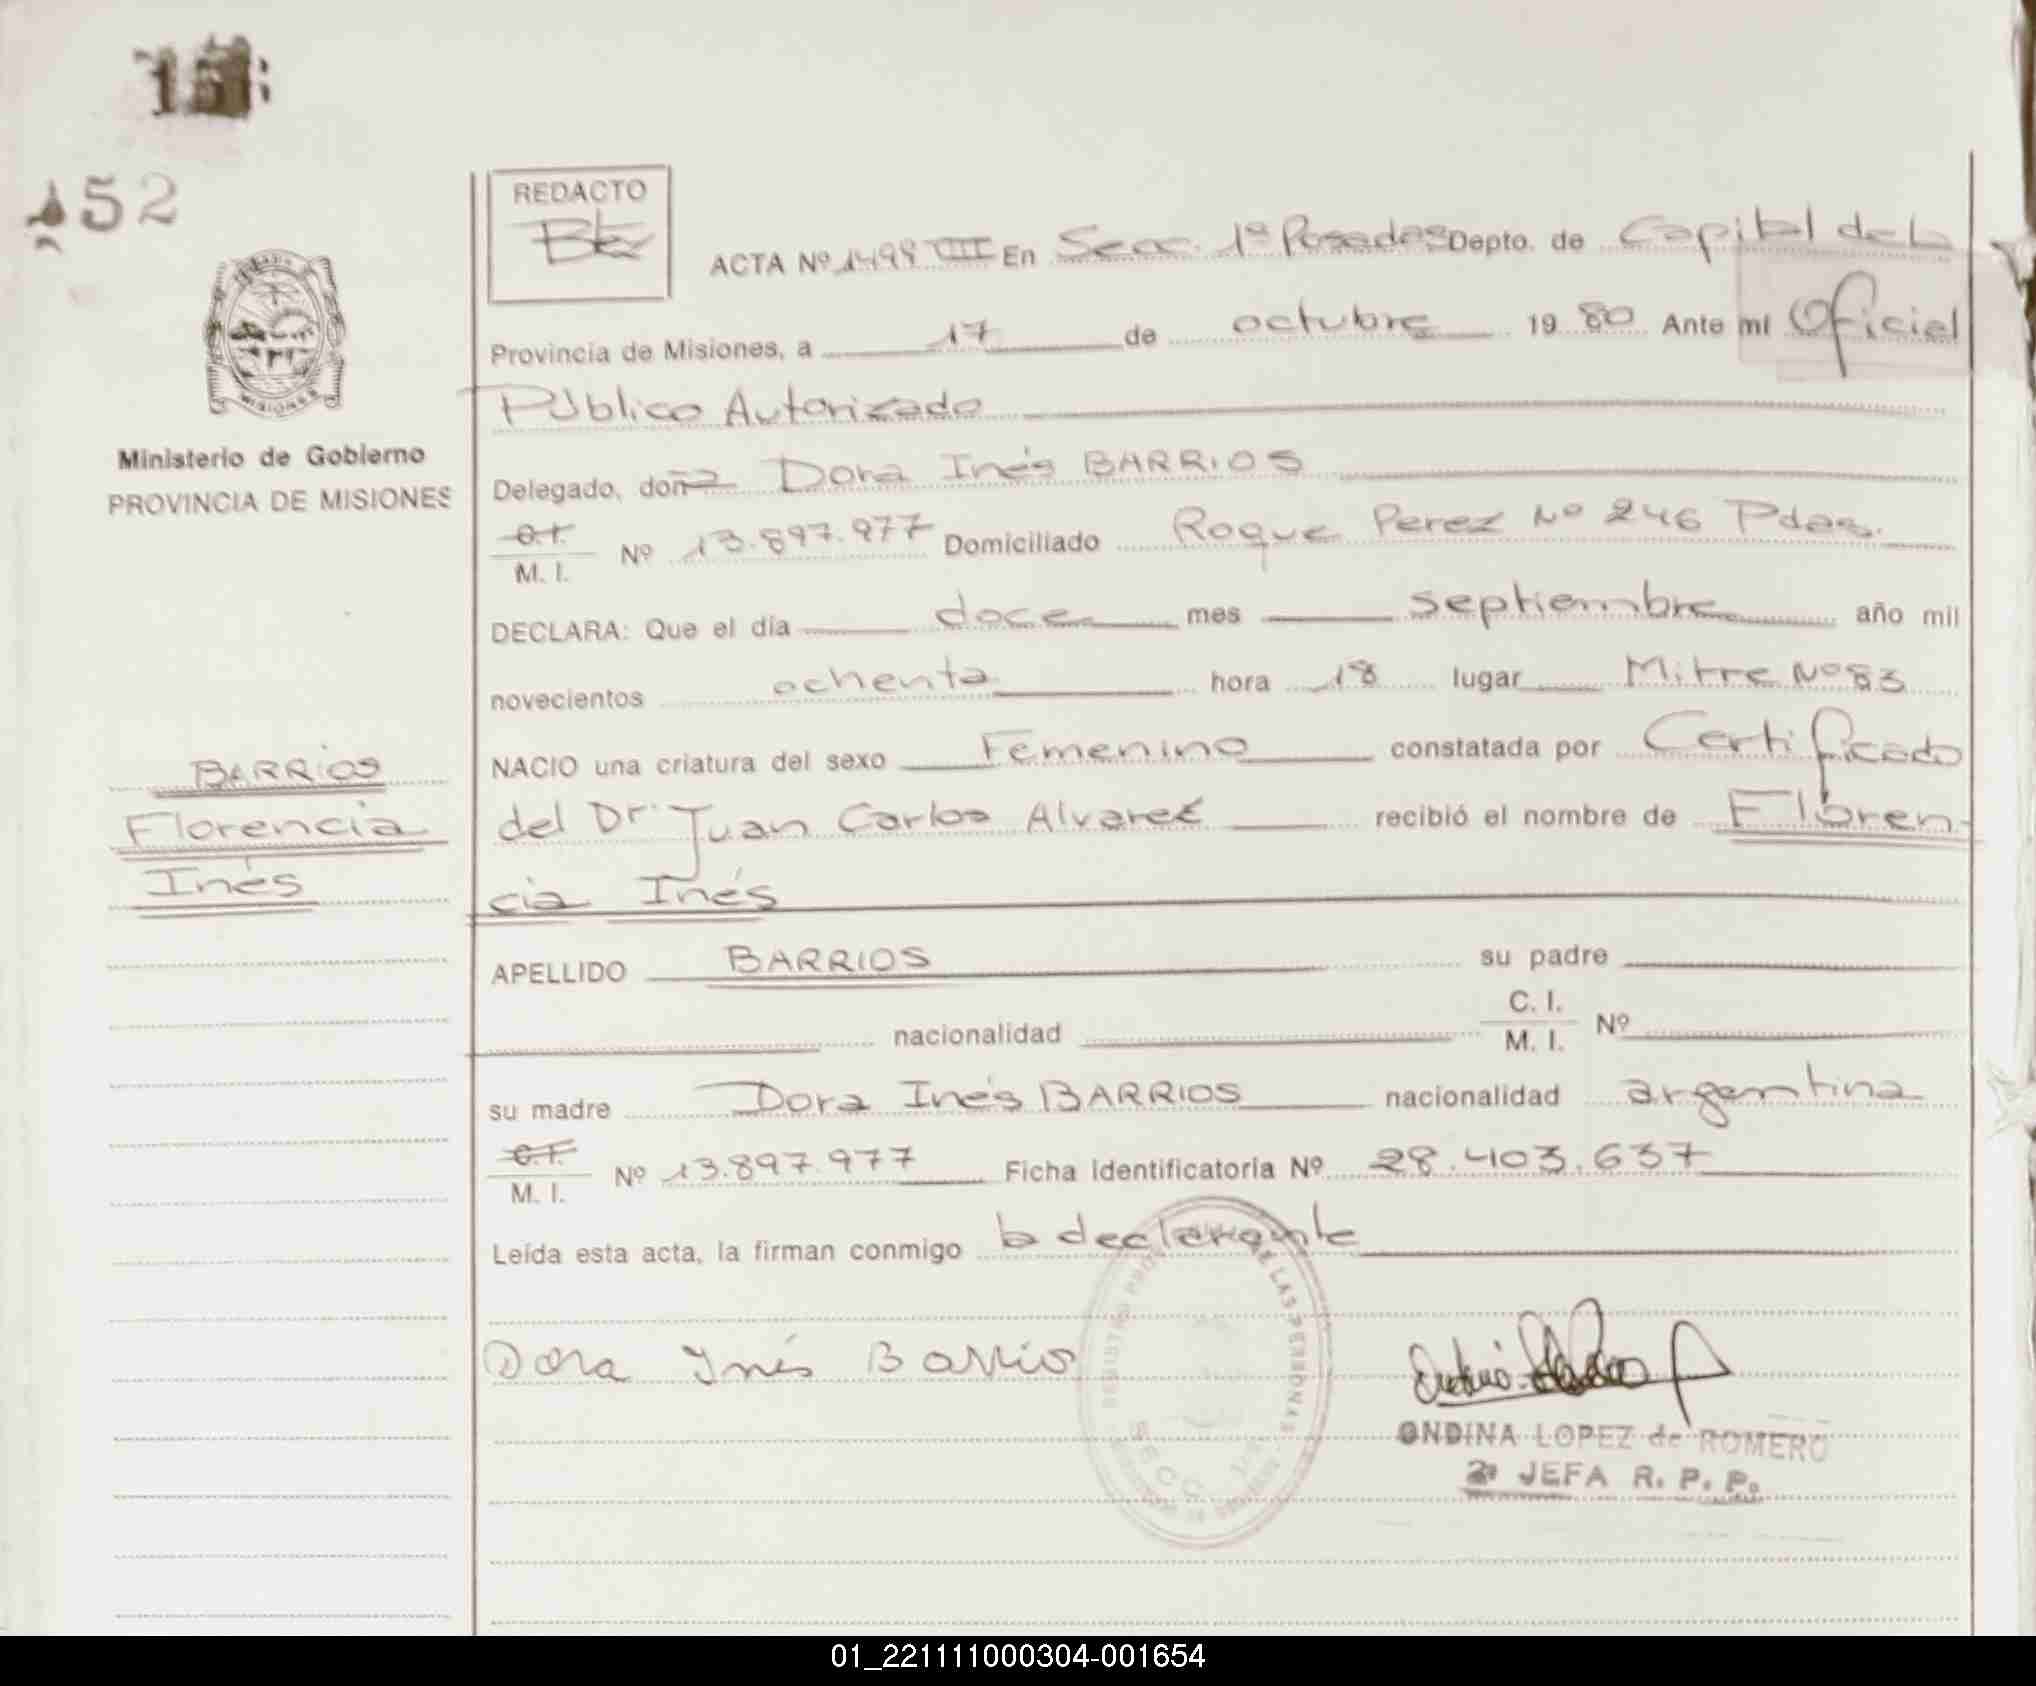 52
REDACTO
ACTA Nº 1498 VIII En Secc. 1ª Posadas Depto. de Capital de la
Provincia de Misiones, a 17 de octubre 1980 Ante mi Oficial
Público Autorizado
Delegado, doña Dora Inés BARRIOS
C.I.
M. I. Nº 13.897.977 Domiciliado Roque Perez Nº 246 Pdas.
DECLARA: Que el día doce mes septiembre año mil
novecientos ochenta hora 18 lugar Mitre Nº 83
NACIO una criatura del sexo Femenino constatada por Certificado
del Dr. Juan Carlos Alvarez recibió el nombre de Floren-
cia Inés
APELLIDO BARRIOS su padre
nacionalidad C. I.
M. I. Nº
su madre Dora Inés BARRIOS nacionalidad argentina
C.I.
M. I. Nº 13.897.977 Ficha Identificatoria Nº 28.403.637
Leída esta acta, la firman conmigo la declarante
Dora Inés Barrios
ONDINA LOPEZ de ROMERO
2ª JEFA R. P. P.
MISIONES
Ministerio de Gobierno
PROVINCIA DE MISIONES
BARRIOS
Florencia
Inés
DE LAS PERSONAS
SECC
01_221111000304-001654